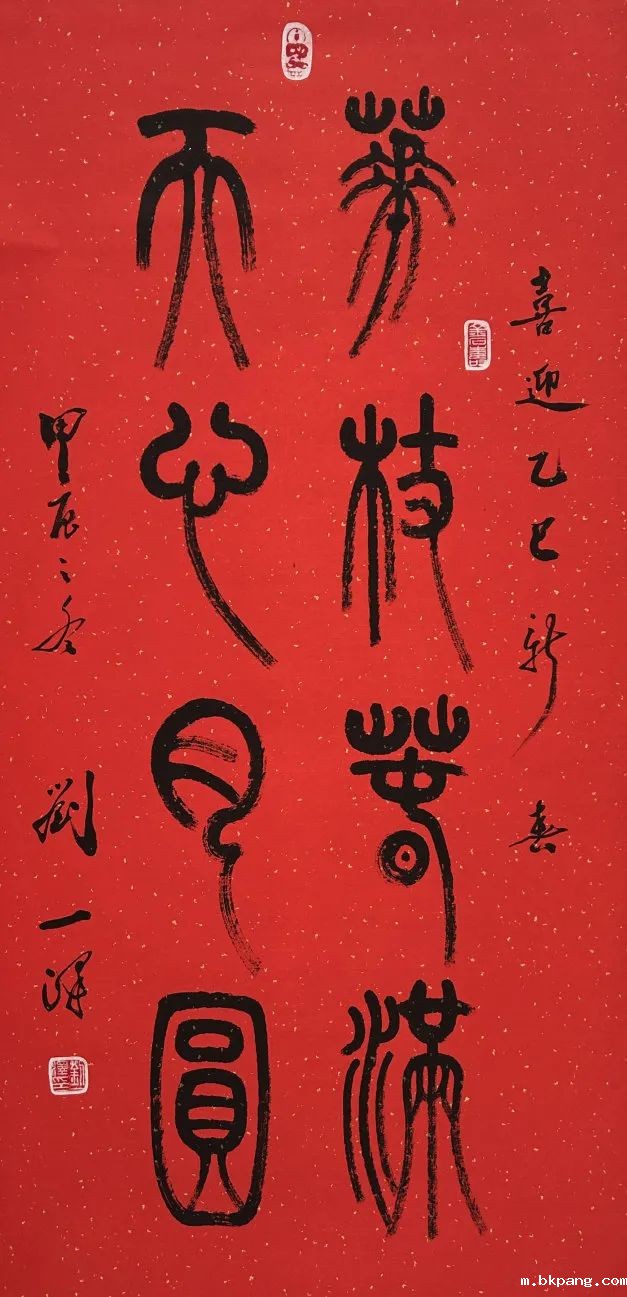 喜迎乙巳新春
華枝春滿
天心月圓
甲辰之冬 劉一澤
m.bkpang.com